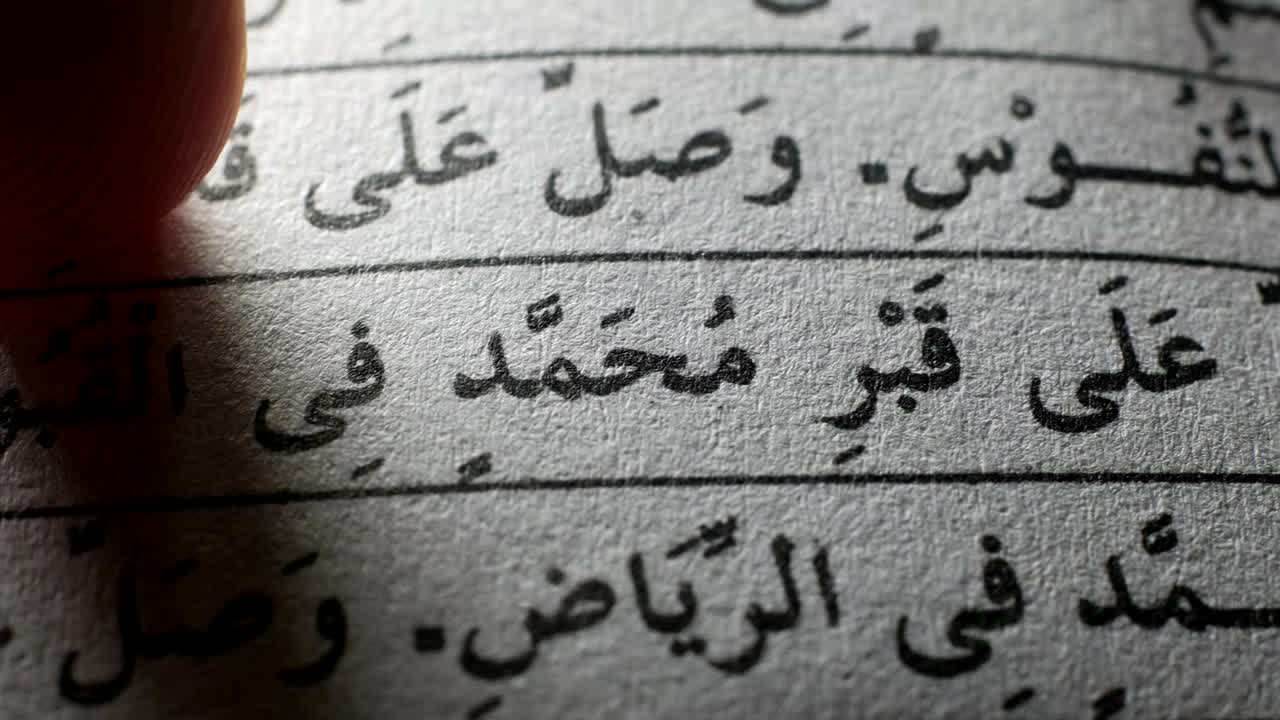 النُّفُوْسِ. وَصَلِّ عَلَى
عَلَى قَبْرِ مُحَمَّدٍ فِي
ـمَّدٍ فِي الرِّيَاضِ. وَصَلِّ